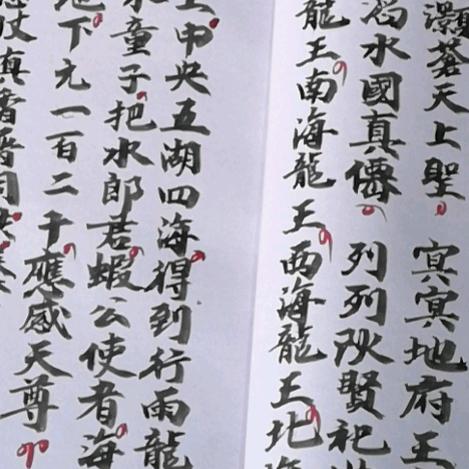 灝蒼天上聖冥冥地府王
水國真僊列列賢祀
龍王南海龍王西海龍王北海
中央五湖四海得到行雨龍
水童子把水郎君蝦公使者海
地下九一百二千應感天尊
仗真香普同供